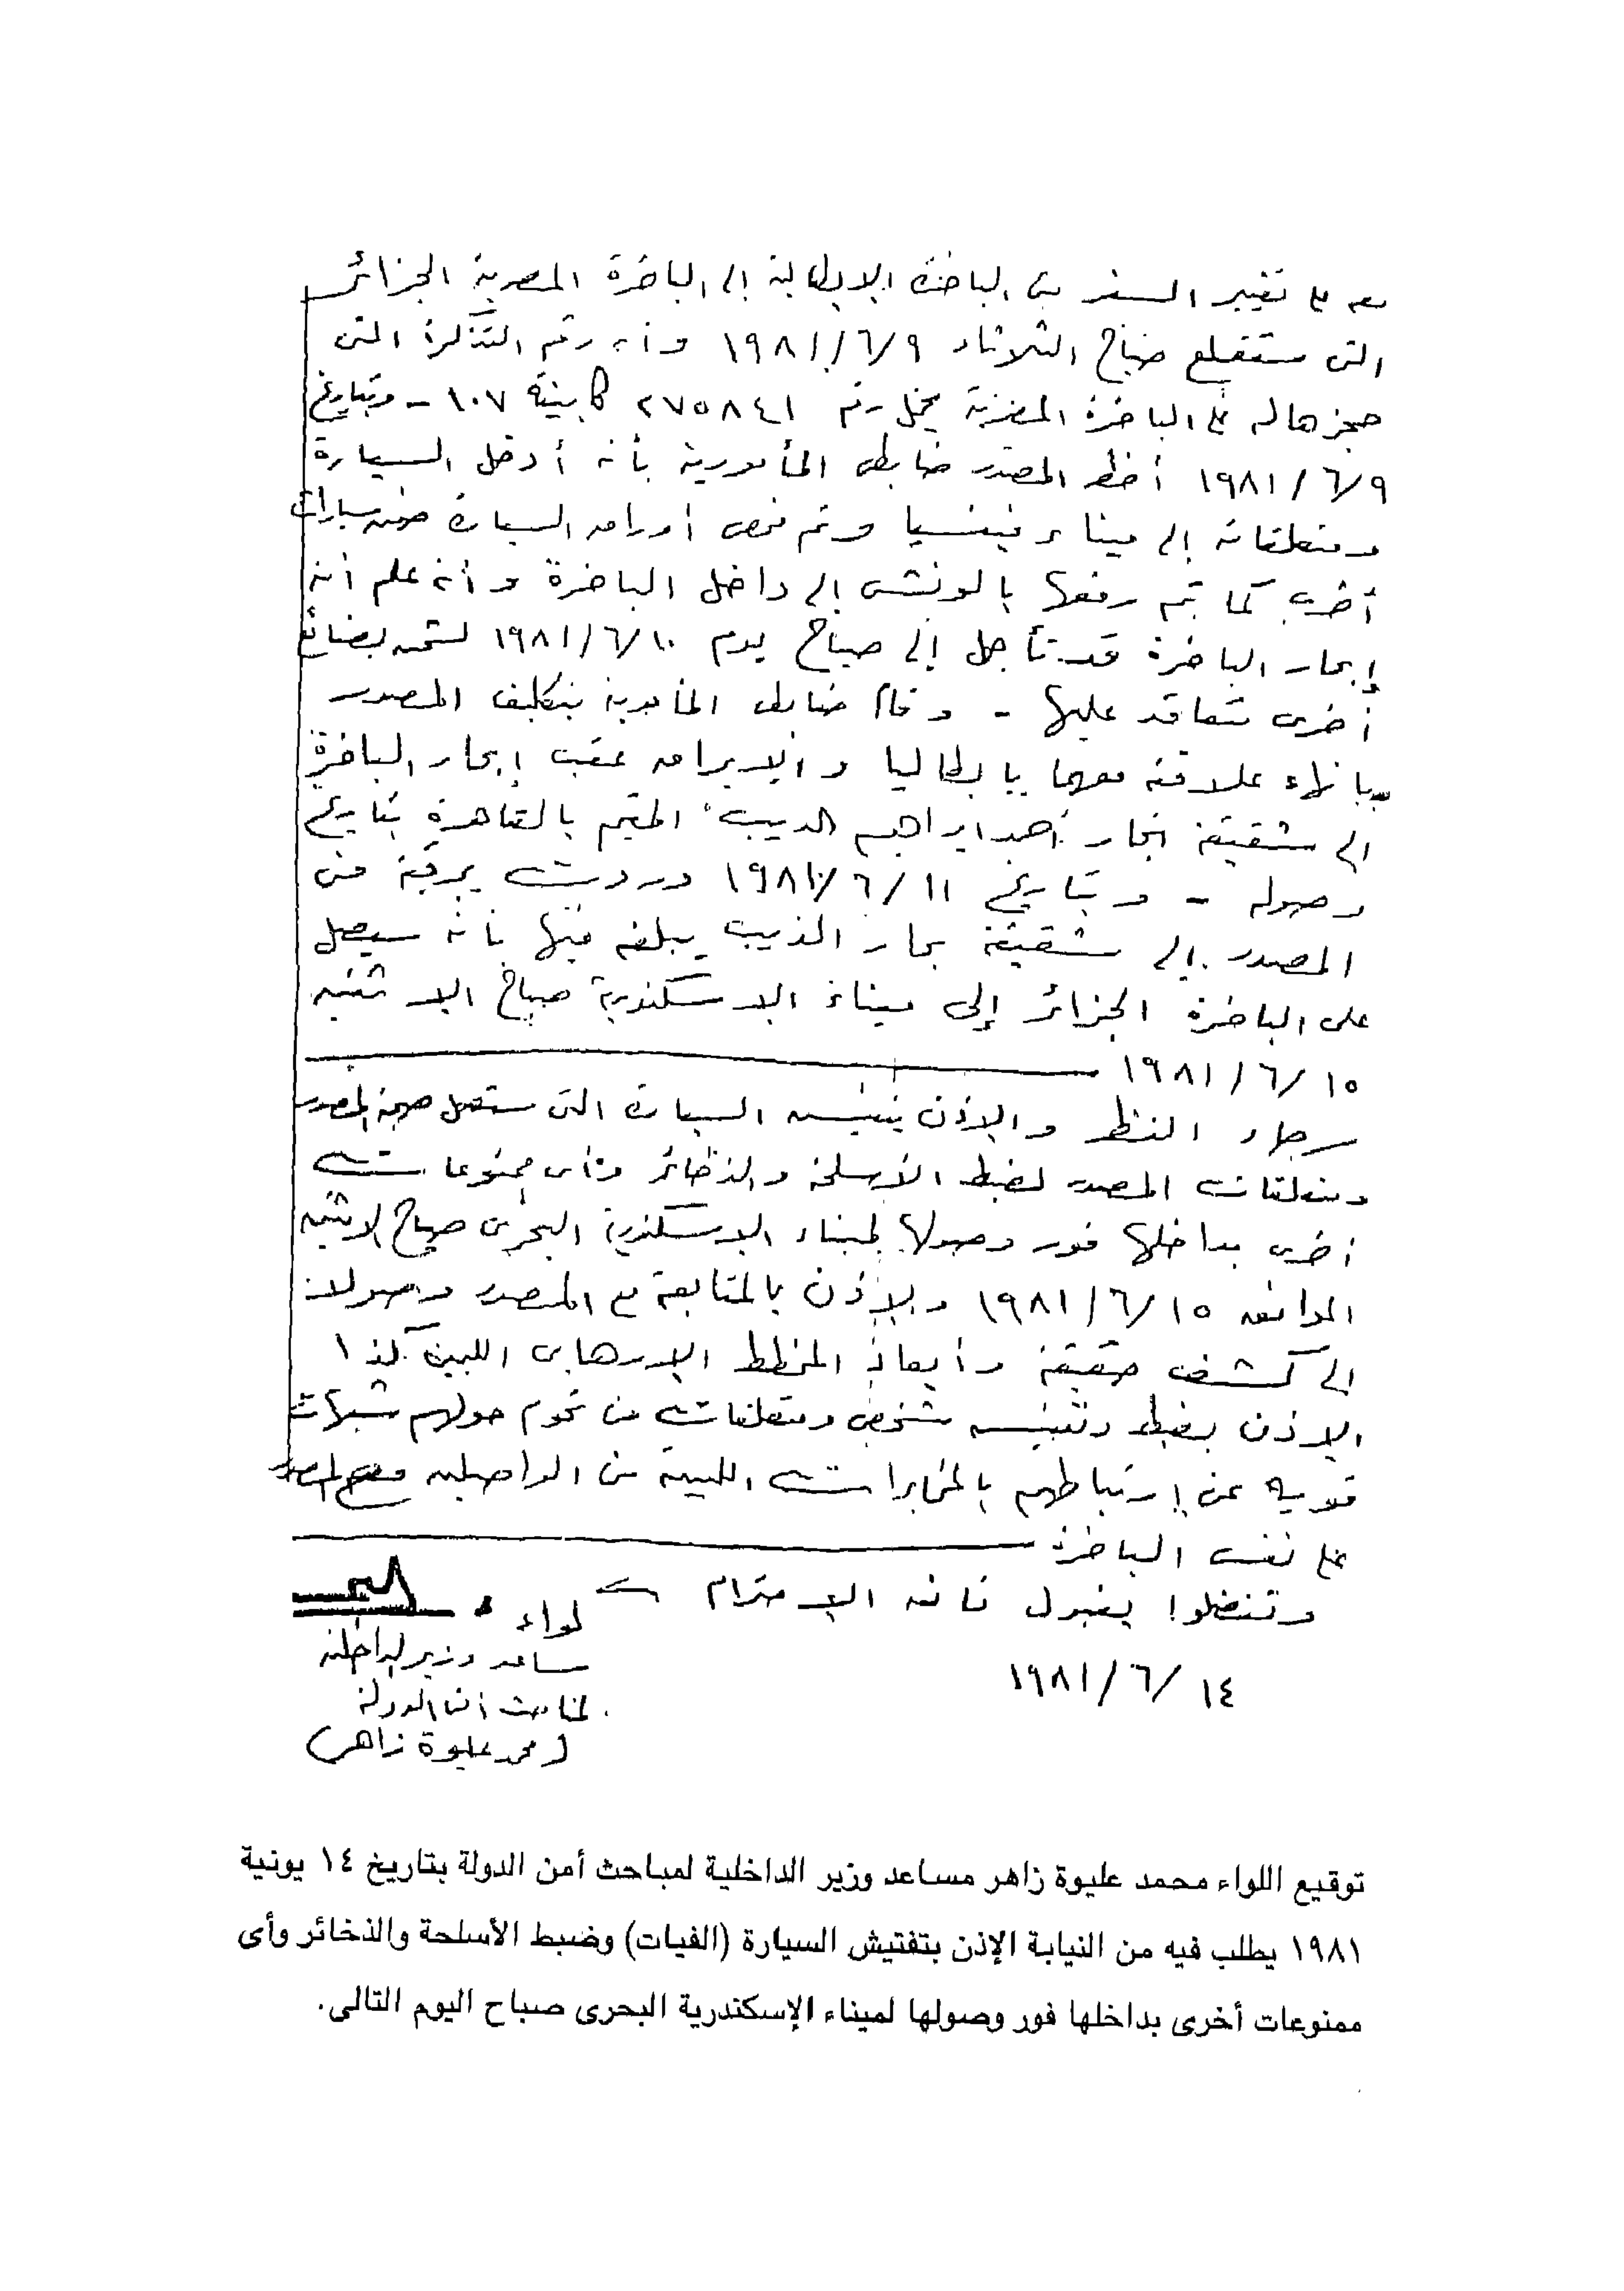 معه على تغيير السفر من الباخرة الإيطالية إلى الباخرة المصرية الجزائر
التى ستقلع صباح الثلاثاء ١٩٨١/٦/٩ وأن رقم التذكرة التى
حجزها له على الباخرة المصرية يحمل رقم ٢٧٥٨٤١ كابينة ١٠٧ - وبتاريخ
١٩٨١/٦/٩ أخطر المصدر ضابط المأمورية بأنه أدخل السيارة
ومتعلقاته إلى ميناء فينسيا وتم فحص أوراق السيارة ضمن سيارات
أخرى كما تم رفعها بالونش إلى داخل الباخرة وأنه علم أنه
إبحار الباخرة قد تأجل إلى صباح يوم ١٩٨١/٦/١٠ لشحن بضائع
أخرى متعاقد عليها - وقام ضابط المأمورية بتكليف المصدر
بإنهاء علاقته معهما بإيطاليا والإبراق عقب إبحار الباخرة
إلى شقيقه أحمد إبراهيم الديب المقيم بالقاهرة بتاريخ
وصوله - وبتاريخ ١٩٨١/٦/١١ وردت برقية من
المصدر إلى شقيقه الديب يبلغه فيها بأنه سيصل
على الباخرة الجزائر إلى ميناء الاسكندرية صباح الاثنين
١٩٨١/٦/١٥
برجاء النظر والإذن بتفتيش السيارة التى ستصل صحبة المصدر
ومتعلقات المصدر لضبط الأسلحة والذخائر وأى ممنوعات
أخرى بداخلها فور وصولها لميناء الاسكندرية البحرى صباح الاثنين
الموافق ١٩٨١/٦/١٥ والإذن بالمتابعة مع المصدر وصولا
إلى كشف حقيقة وأبعاد المخطط الإرهابى الليبى كذا
الإذن بضبط وتفتيش شخص ومتعلقات من تحوم حولهم شبهات
قوية عن إرتباطهم بالمخابرات الليبية من الواصلين مع المصدر
على نفس الباخرة
وتفضلوا بقبول فائق الاحترام
لواء
مساعد وزير الداخلية
لمباحث أمن الدولة
(محمد عليوة زاهر)
١٩٨١/٦/١٤
توقيع اللواء محمد عليوة زاهر مساعد وزير الداخلية لمباحث أمن الدولة بتاريخ ١٤ يونية
١٩٨١ يطلب فيه من النيابة الإذن بتفتيش السيارة (الفيات) وضبط الأسلحة والذخائر وأى
ممنوعات أخرى بداخلها فور وصولها لميناء الإسكندرية البحرى صباح اليوم التالى.